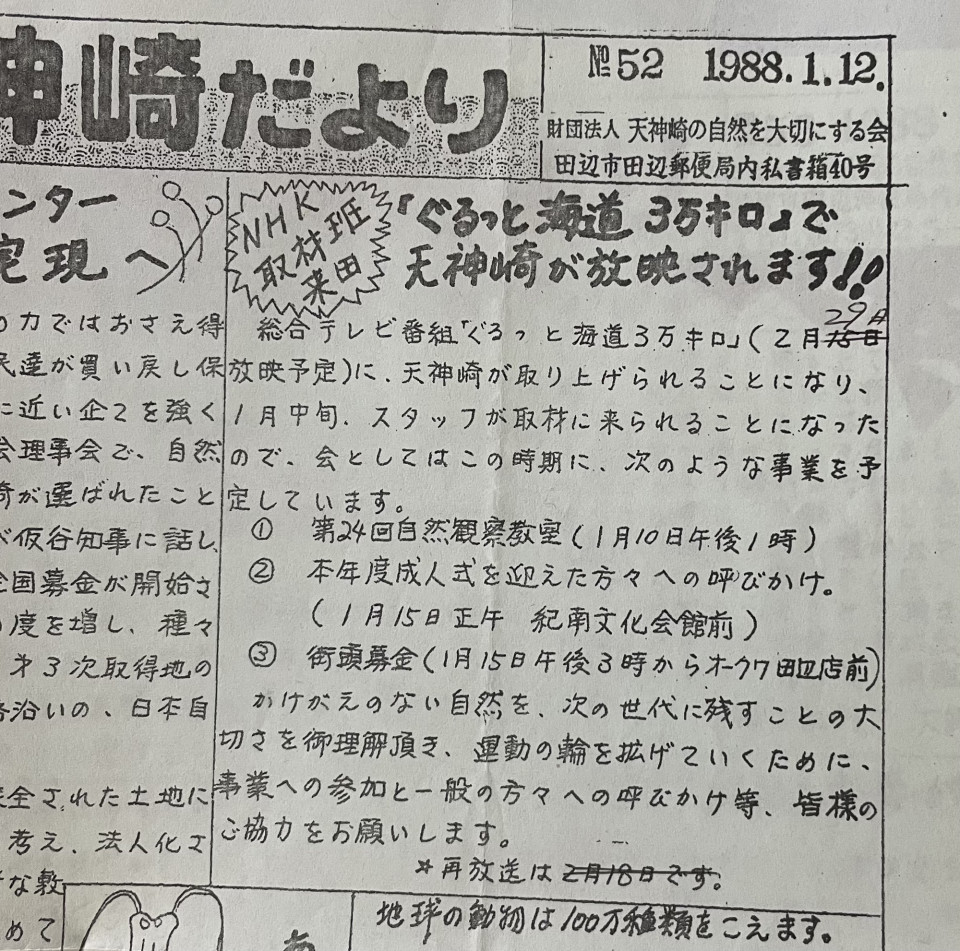 神崎だより
№52 1988.1.12.
財団法人 天神崎の自然を大切にする会
田辺市田辺郵便局内私書箱40号
NHK
取材班
来田
「ぐるっと海道3万キロ」で
天神崎が放映されます!!
総合テレビ番組「ぐるっと海道3万キロ」(2月15日
29日
放映予定)に、天神崎が取り上げられることになり、
1月中旬、スタッフが取材に来られることになった
ので、会としてはこの時期に、次のような事業を予
定しています。
① 第24回自然観察教室(1月10日午後1時)
② 本年度成人式を迎えた方々への呼びかけ。
(1月15日正午 紀南文化会館前)
③ 街頭募金(1月15日午後3時からオークワ田辺店前)
かけがえのない自然を、次の世代に残すことの大
切さを御理解頂き、運動の輪を拡げていくために、
事業への参加と一般の方々への呼びかけ等、皆様の
ご協力をお願いします。
☆再放送は2月18日です。
ンター
実現へ
の力ではおさえ得
民達が買い戻し保
に近い企てを強く
会理事会で、自然
崎が選ばれたこと
仮谷知事に話し、
全国募金が開始さ
度を増し、種々
才3次取得地の
沿いの、日本自
全された土地に
考え、法人化さ
な敷
めて
地球の動物は100万種類をこえます。
あ